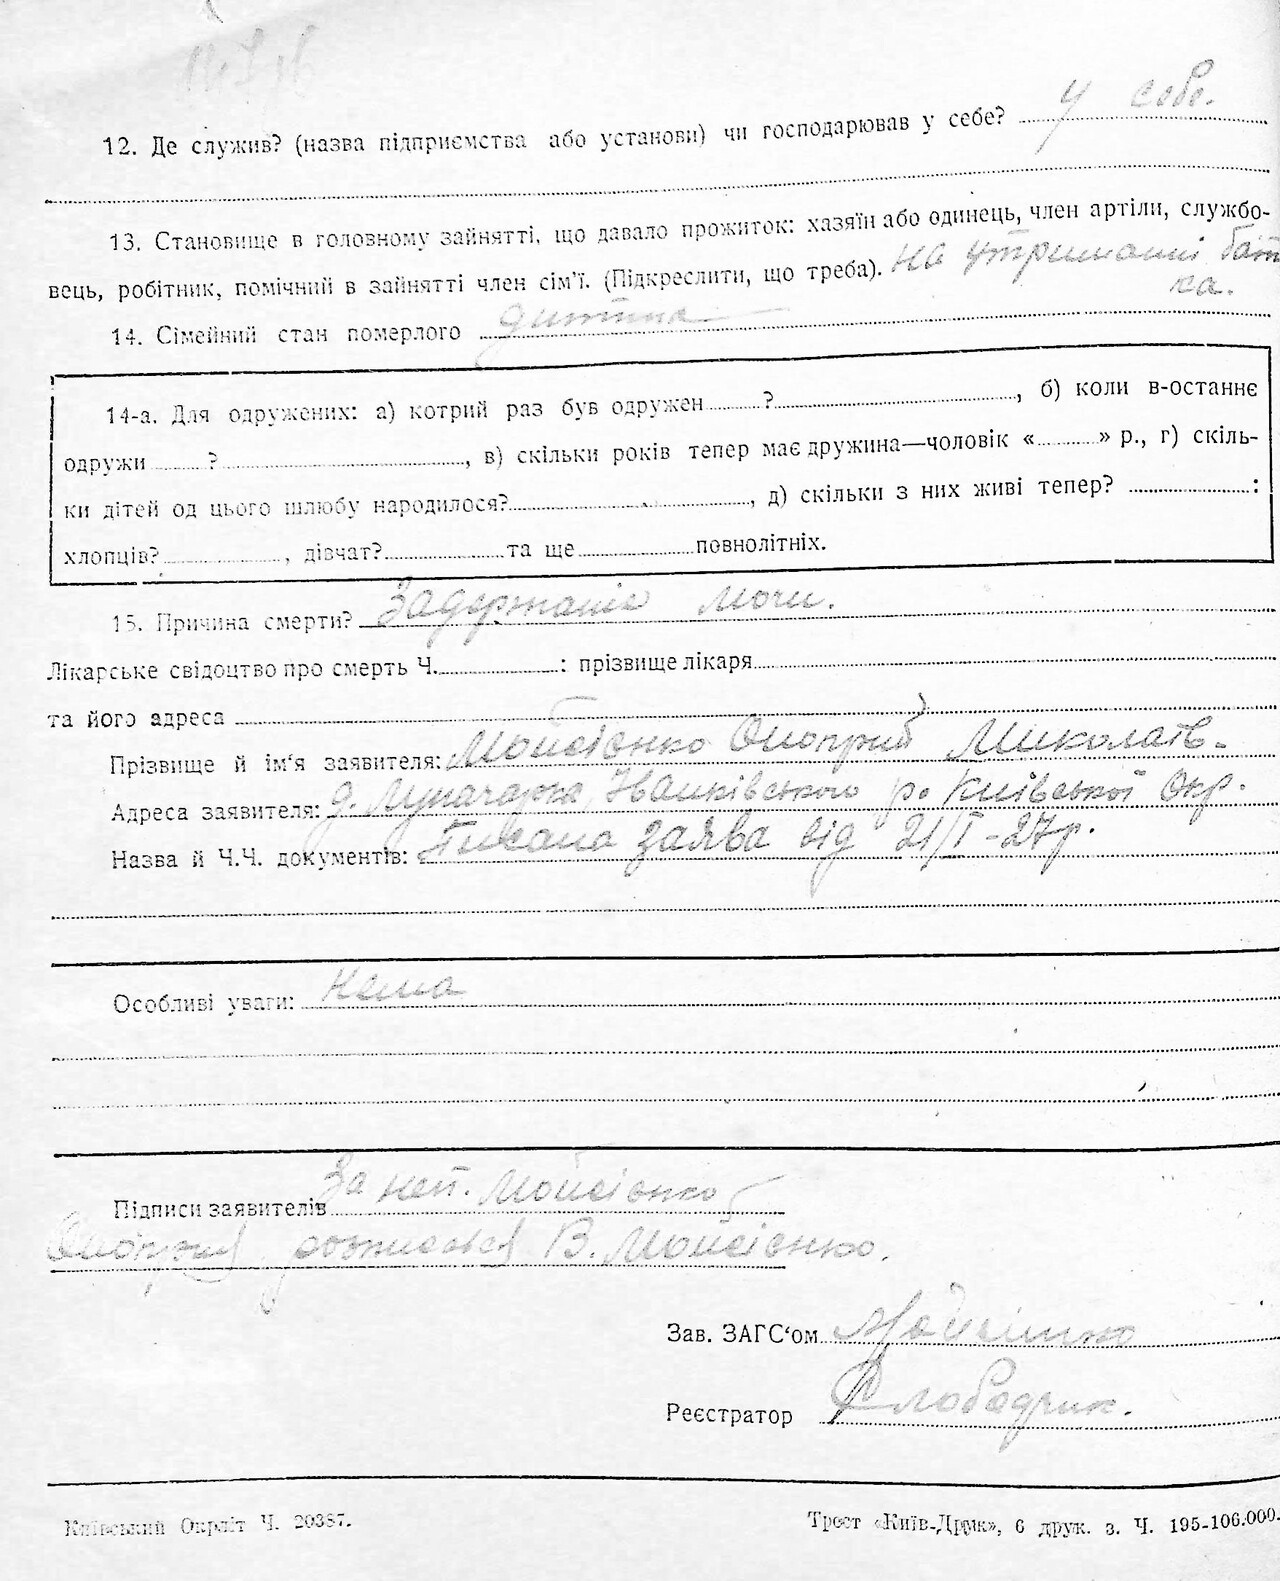 12. Де служив? (назва підприємства або установи) чи господарював у себе? У себе.
13. Становище в головному зайнятті, що давало прожиток: хазяїн або одинець, член артіли, службо-
вець, робітник, помічний в зайнятті член сім'ї. (Підкреслити, що треба). на утриманні бать
ка.
14. Сімейний стан померлого дитина
14-а. Для одружених: а) котрий раз був одружен ? , б) коли в-останнє
одружи ? , в) скільки років тепер має дружина—чоловік « » р., г) скіль-
ки дітей од цього шлюбу народилося? , д) скільки з них живі тепер? :
хлопців? , дівчат? та ще повнолітніх.
15. Причина смерти? Задержаніе мочи.
Лікарське свідоцтво про смерть Ч. : прізвище лікаря
та його адреса
Прізвище й ім'я заявителя: Мойсієнко Оноприй Миколаїв.
Адреса заявителя: д. Луначарка, Іванківського р. Київської Окр.
Назва й Ч.Ч. документів: Писана заява від 21/I-27р.
Особливі уваги: Нема
Підписи заявителів За неп. Мойсієнко
Оноприя росписався В. Мойсієнко.
Зав. ЗАГС'ом
Реєстратор
Київський Окрліт Ч. 20387.
Трест «Київ-Друк», 6 друк. з. Ч. 195-106.000.